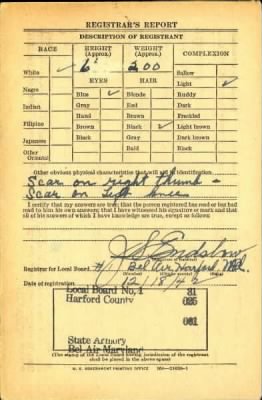 REGISTRAR'S REPORT
DESCRIPTION OF REGISTRANT
RACE HEIGHT (Approx.) WEIGHT (Approx.) COMPLEXION
White ✓ 6' 200 Sallow
EYES HAIR Light ✓
Negro Blue ✓ Blonde Ruddy
Indian Gray Red Dark
Filipino Hazel Brown Freckled
Brown Black ✓ Light brown
Japanese Black Gray Dark brown
Other Bald Black
Oriental
Other obvious physical characteristics that will aid in identification
Scar on right thumb -
Scar on left knee
I certify that my answers are true; that the person registered has read or has had
read to him his own answers; that I have witnessed his signature or mark and that
all of his answers of which I have knowledge are true, except as follows:
Registrar for Local Board #1 Bel Air Harford Md.
Date of registration 12/18/42
Local Board No. 1 31
Harford County 025
001
State Armory
Bel Air Maryland
(The stamp of the Local Board having jurisdiction of the registrant
shall be placed in the above space)